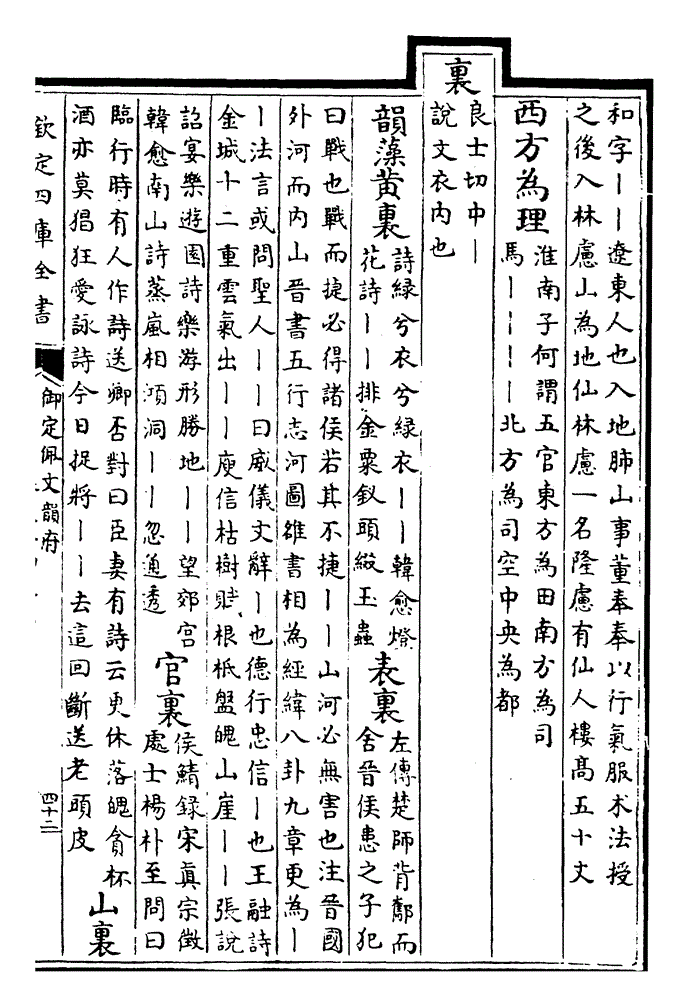 和字丨丨遼東人也入地肺山事董奉奉以行氣服术法授
之後入林慮山為地仙林慮一名隆慮有仙人樓高五十丈
西方為理
淮南子何謂五官東方為田南方為司
馬丨丨丨丨北方為司空中央為都
裏
良士切中丨
說文衣内也
韻藻黄裏
詩緑兮衣兮緑衣丨丨韓愈燈
花詩丨丨排金粟釵頭綴玉蟲
表裏
左傳楚師背酅而
舍晉侯患之子犯
曰戰也戰而捷必得諸侯若其不捷丨丨山河必無害也注晉國
外河而内山晉書五行志河圖雒書相為經緯八卦九章更為丨
丨法言或問聖人丨丨曰威儀文辭丨也德行忠信丨也王融詩
金城十二重雲氣出丨丨庾信枯樹賦根柢盤魄山崖丨丨張說
詔宴樂遊園詩樂游形勝地丨丨望郊宫
韓愈南山詩蒸嵐相澒洞丨丨忽通透
官裏
侯鯖録宋真宗徵
處士楊朴至問曰
臨行時有人作詩送卿否對曰臣妻有詩云更休落魄貪杯
酒亦莫猖狂愛詠詩今日捉將丨丨去這回斷送老頭皮
山裏
欽定四庫全書
御定佩文韻府
四十二